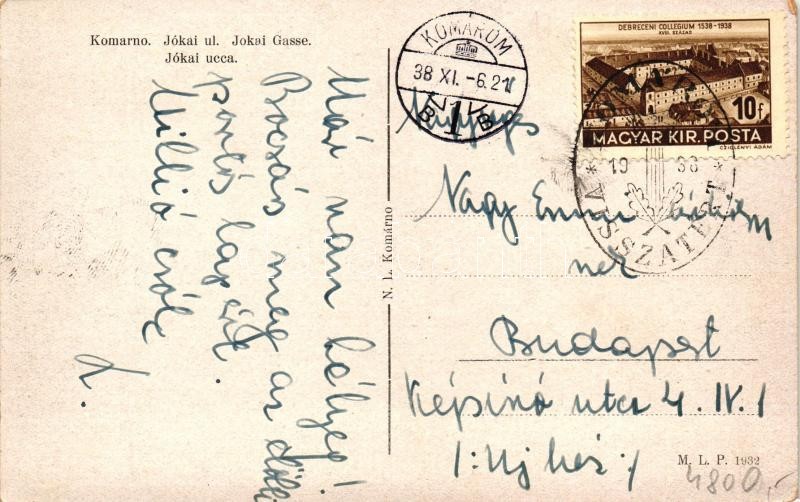 Komarno. Jókai ul. Jokai Gasse.
Jókai ucca.
Már van bélyeg!
Bocsás meg az
postás lapért.
Millió csók
L.
N. L. Komárno
KOMÁROM
38 XI. -6.21
1
B B
DEBRECENI COLLEGIUM 1538-1938
XVIII. SZÁZAD
10f
MAGYAR KIR. POSTA
CZIGLÉNYI ÁDÁM
19 38
VISSZATÉRT
Nagy Emma
nek
Budapest
Képíró utca 4. IV. 1
/: Uj ház :/
M. L. P. 1932
4800.-